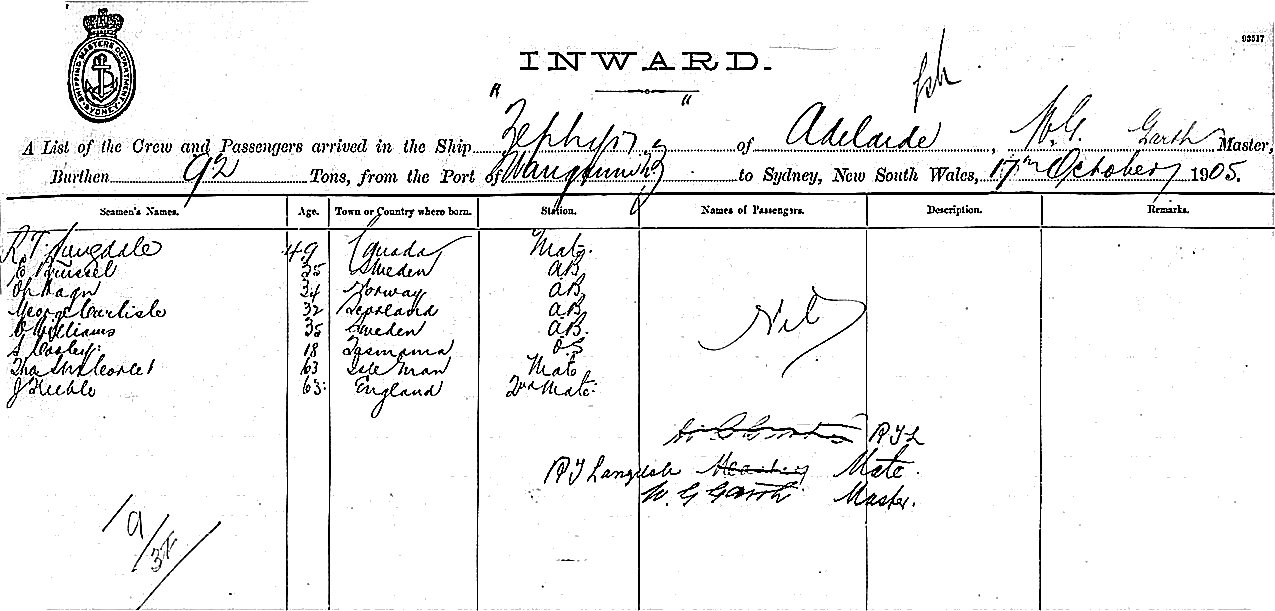 SHIPPING MASTERS DEPARTMENT SYDNEY
93517
INWARD.
A List of the Crew and Passengers arrived in the Ship "Zephyr" of Adelaide, W. G. Garth Master,
Burthen 92 Tons, from the Port of to Sydney, New South Wales, 17th October 1905.
Seamen's Names. Age. Town or Country where born. Station. Names of Passengers. Description. Remarks.
R. T. Langdale 49 Canada Mate
35 Sweden AB
34 Norway AB
George Carlisle 32 AB
Williams 35 Sweden AB.
S 18 Tasmania OS
63 Isle Man Mate
J Keeble 63 England 2nd Mate
Nil
R T L
R T Langdale Mate.
W. G Garth Master.